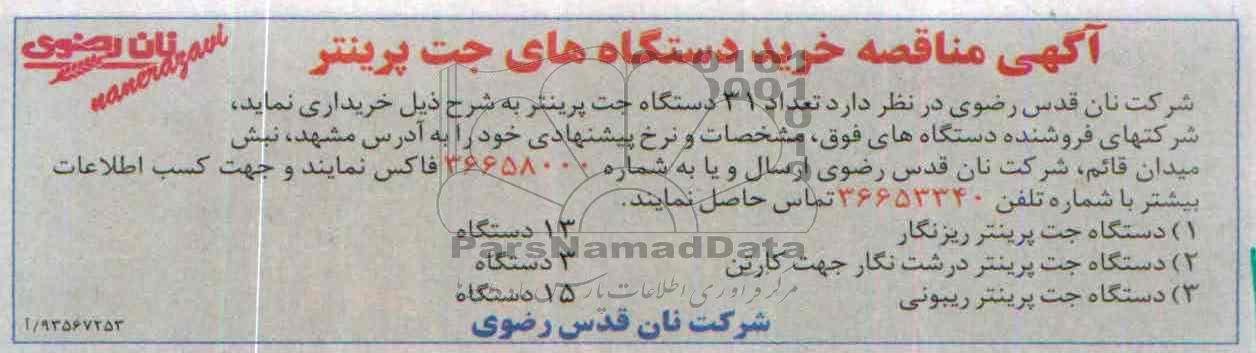 آگهی مناقصه خرید دستگاه های جت پرینتر
نان رضوی
nanerazavi
شرکت نان قدس رضوی در نظر دارد تعداد ۳۱ دستگاه جت پرینتر به شرح ذیل خریداری نماید،
شرکتهای فروشنده دستگاه های فوق، مشخصات و نرخ پیشنهادی خود را به آدرس مشهد، نبش
میدان قائم، شرکت نان قدس رضوی ارسال و یا به شماره ۳۶۶۵۸۰۰۰ فاکس نمایند و جهت کسب اطلاعات
بیشتر با شماره تلفن ۳۶۶۵۳۳۴۰ تماس حاصل نمایند.
۱) دستگاه جت پرینتر ریزنگار ۱۳ دستگاه
۲) دستگاه جت پرینتر درشت نگار جهت کارتن ۳ دستگاه
۳) دستگاه جت پرینتر ریبونی ۱۵ دستگاه
شرکت نان قدس رضوی
۹۳۵۶۷۲۵۳/آ
ParsNamadData
مرکز فرآوری اطلاعات پارس نماد داده ها